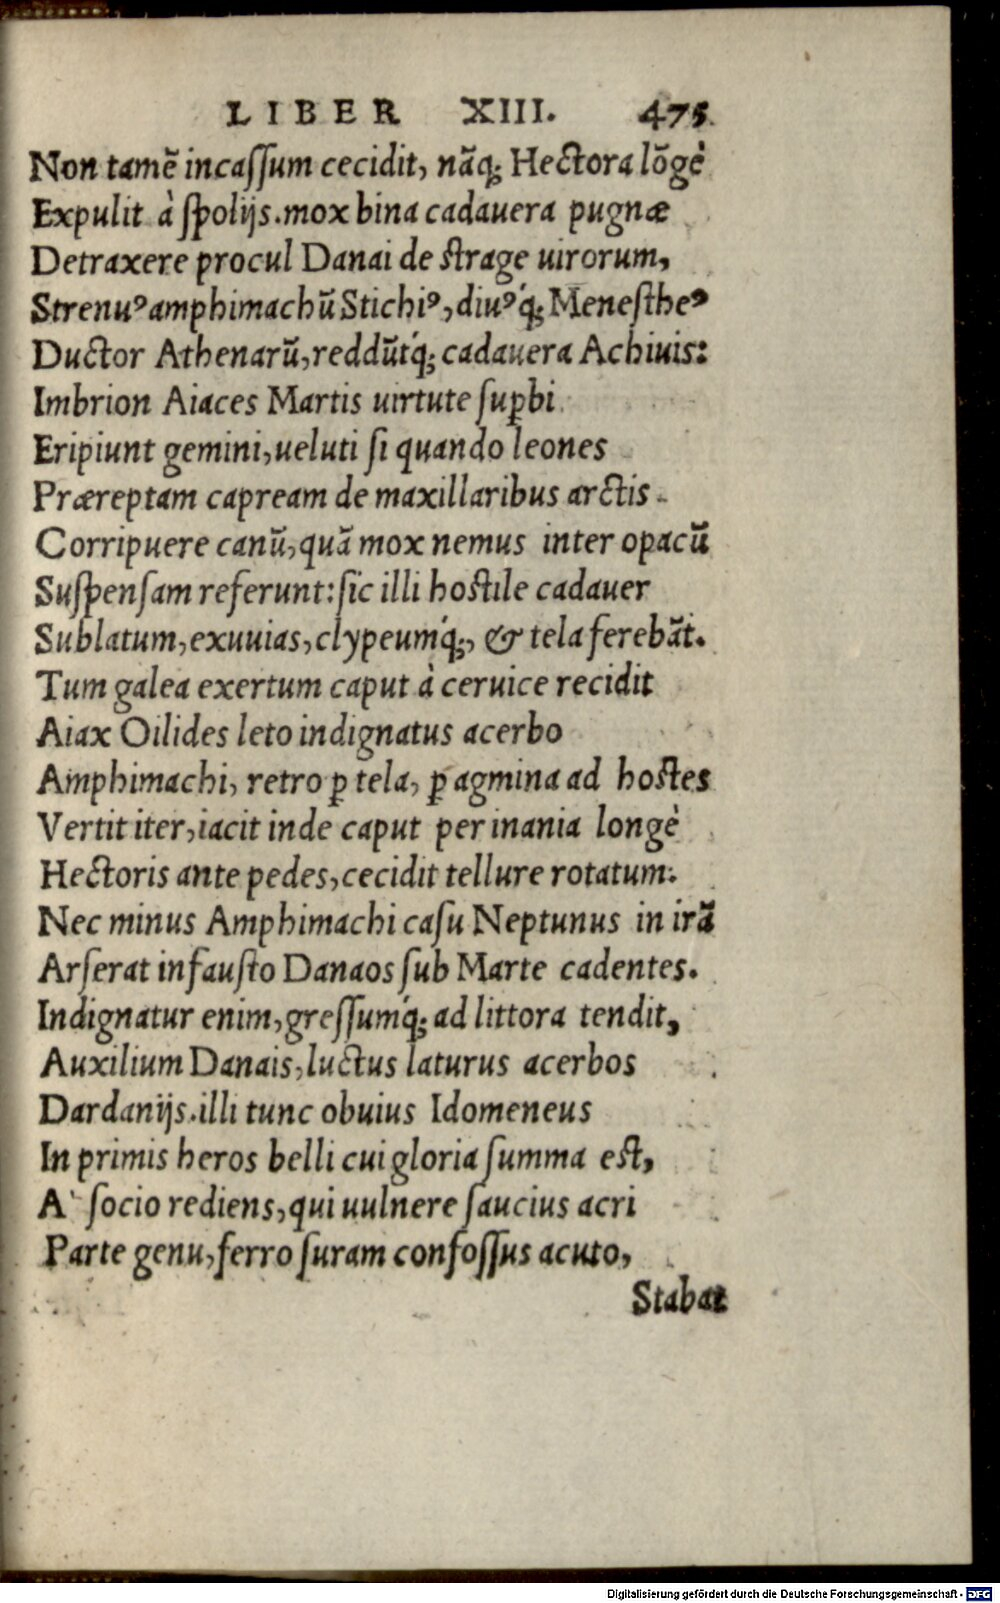 LIBER XIII. 475.
Non tamē incaſſum cecidit, nāq; Hectora lōgè
Expulit à ſpolijs. mox bina cadauera pugnæ
Detraxere procul Danai de ſtrage uirorum,
Strenuꝰ amphimachū Stichiꝰ, diuꝰq́; Meneſtheꝰ
Ductor Athenarū, reddūtq́; cadauera Achiuis:
Imbrion Aiaces Martis uirtute ſuꝑbi
Eripiunt gemini, ueluti ſi quando leones
Præreptam capream de maxillaribus arctis
Corripuere canū, quā mox nemus inter opacū
Suſpenſam referunt: ſic illi hoſtile cadauer
Sublatum, exuuias, clypeumq́;, & tela ferebāt.
Tum galea exertum caput à ceruice recidit
Aiax Oilides leto indignatus acerbo
Amphimachi, retro ꝑ tela, ꝑ agmina ad hoſtes
Vertit iter, iacit inde caput per inania longè
Hectoris ante pedes, cecidit tellure rotatum.
Nec minus Amphimachi caſu Neptunus in irā
Arſerat infauſto Danaos ſub Marte cadentes.
Indignatur enim, greſſumq́; ad littora tendit,
Auxilium Danais, luctus laturus acerbos
Dardanijs. illi tunc obuius Idomeneus
In primis heros belli cui gloria ſumma eſt,
A` ſocio rediens, qui uulnere ſaucius acri
Parte genu, ferro ſuram confoſſus acuto,
Stabat
Digitalisierung gefördert durch die Deutsche Forschungsgemeinschaft - DFG